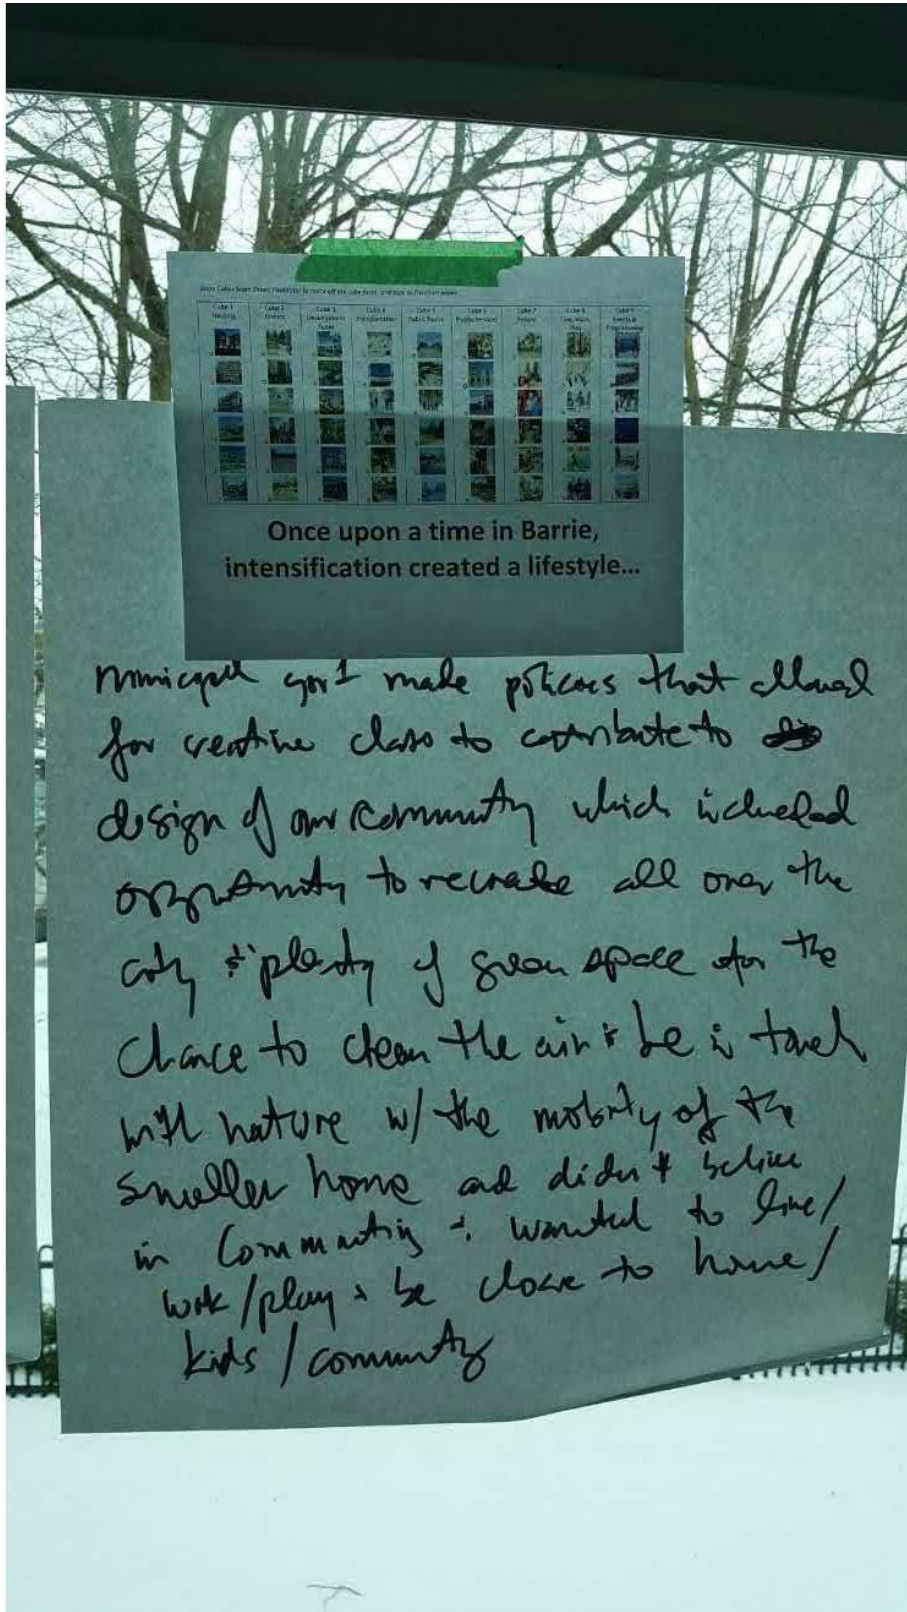 Cube 1
Cube 2
Cube 3
Cube 4
Cube 5
Cube 6
Cube 7
Cube 8
Cube 9
Housing
Transportation
People
Once upon a time in Barrie,
intensification created a lifestyle...
municipal gov't made policies that allowed
for creative class to contribute to
design of our community which included
opportunity to recreate all over the
city & plenty of green space for the
chance to clean the air & be in touch
with nature w/ the mobility of the
smaller home and didn't believe
in commuting & wanted to live/
work/play & be close to home/
kids/community